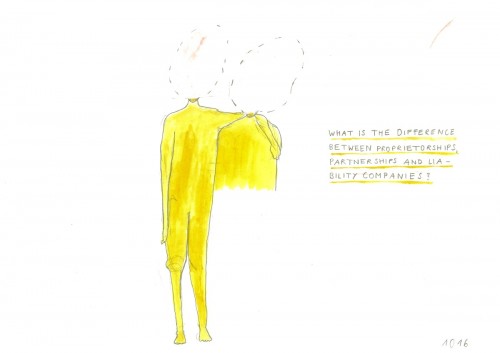 WHAT IS THE DIFFERENCE
BETWEEN PROPRIETORSHIPS,
PARTNERSHIPS AND LIA-
BILITY COMPANIES?
1016